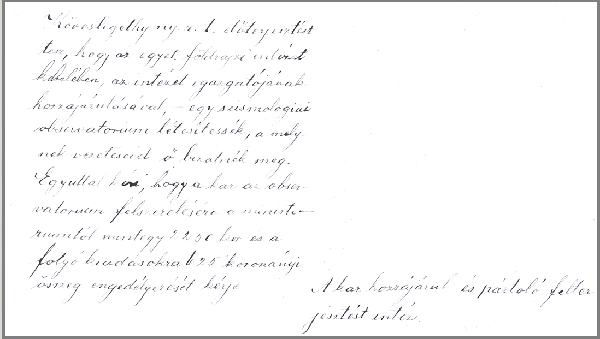 Kövesligethy ny. r. t. előterjesztést
tesz, hogy az egyet. földrajzi intézet
kebelében, az intézet igazgatójának
hozzájárulásával, – egy seismologiai
observatorium létesítessék, a mely
nek vezetésével ő bizatnék meg.
Egyuttal kéri, hogy a kar az obser-
vatorium felszerelésére a ministe-
riumtól mintegy 2250 kor és a
folyó kiadásokra 625 koronányi
össeg engedélyezését kérje
A kar hozzájárul és pártoló felter
jesztést intéz.